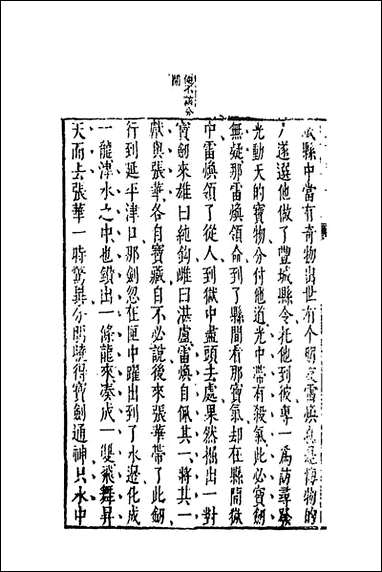 總不說分
開
城縣中當有奇物出世有个雷煥是博物的
人遂選他做了豐城縣令托他到彼專一爲訪尋發
光動天的寶物分付他道光中帶有殺氣此必寶劒
無疑那雷煥領命到了縣間看那寶氣却在縣間獄
中雷煥領了從人到獄中盡頭去處果然掘出一對
寶劒來雄曰純鉤雌曰湛盧雷煥自佩其一將其一
獻與張華各自寶藏自不必說後來張華帶了此劒
行到延平津口那劍忽在匣中躍出到了水邊化成
一龍津水之中也鑽出一條龍來凑成一雙飛舞昇
天而去張華一時驚異分明曉得寶劍通神只水中